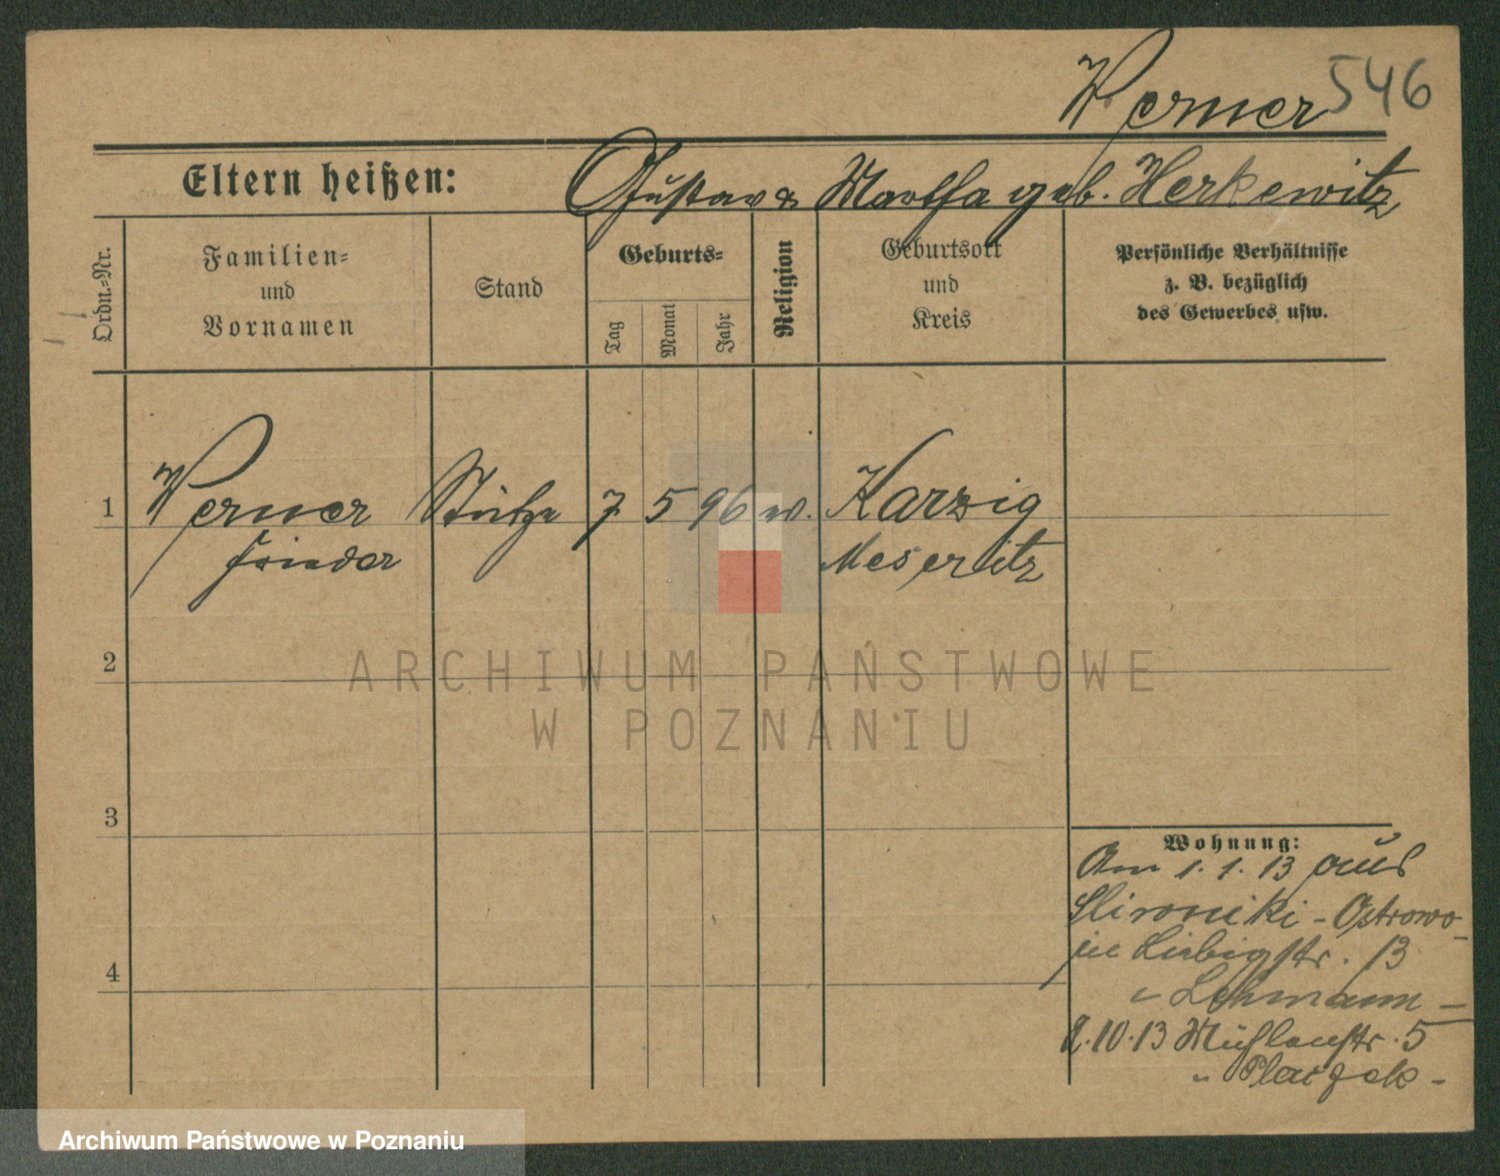 Werner 546
Eltern heißen: Gustav & Martha geb. Herkewitz
Ordn.-Nr.
Familien-
und
Vornamen
Stand
Geburts-
Tag
Monat
Jahr
Religion
Geburtsort
und
Kreis
Persönliche Verhältnisse
z. B. bezüglich
des Gewerbes usw.
1 Werner Stütze 7. 5 96 Karzig
Meseritz
ARCHIWUM PAŃSTWOWE
W POZNANIU
2
3
4
Wohnung:
Am 1. 1. 13 aus
Slivniki - Ostrowo -
in Liebigstr. 13
Lehmann -
2.10.13 Mühlenstr. 5
Archiwum Państwowe w Poznaniu